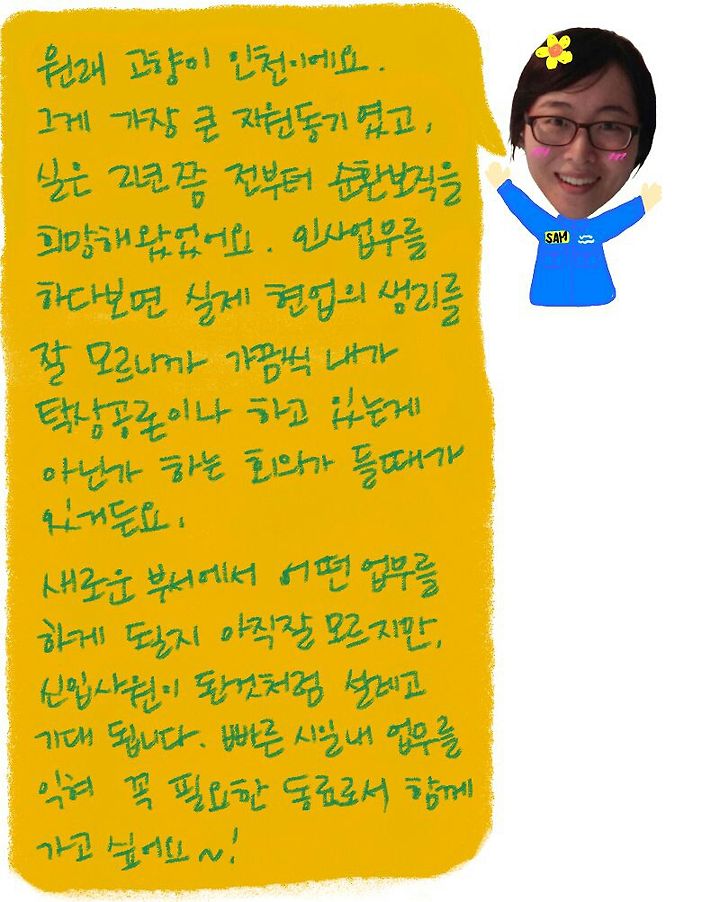 원래 고향이 인천이에요.
그게 가장 큰 지원동기 였고,
실은 2년쯤 전부터 순환보직을
희망해왔었어요. 인사업무를
하다보면 실제 현업의 생리를
잘 모르니까 가끔씩 내가
탁상공론이나 하고 있는게
아닌가 하는 회의가 들때가
있거든요.
새로운 부서에서 어떤 업무를
하게 될지 아직잘 모르지만,
신입사원이 된것처럼 설레고
기대 됩니다. 빠른 시일내 업무를
익혀 꼭 필요한 동료로서 함께
가고 싶어요~!
SAM